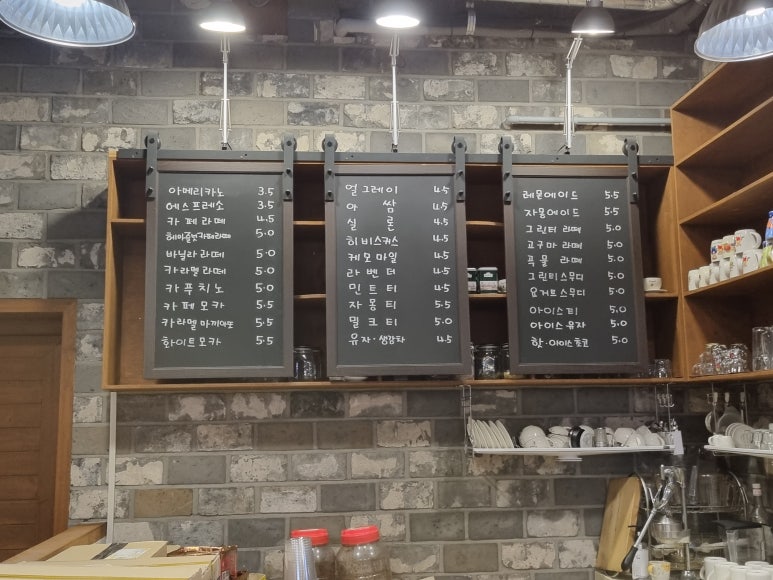 아메리카노 3.5
에스프레소 3.5
카페라떼 4.5
헤이즐넛카페라떼 5.0
바닐라라떼 5.0
카라멜라떼 5.0
카푸치노 5.0
카페모카 5.5
카라멜마끼아또 5.5
화이트모카 5.5
얼그레이 4.5
아쌈 4.5
실론 4.5
히비스커스 4.5
케모마일 4.5
라벤더 4.5
민트티 4.5
자몽티 5.5
밀크티 5.0
유자·생강차 4.5
레몬에이드 5.5
자몽에이드 5.5
그린티 라떼 5.0
고구마 라떼 5.0
곡물 라떼 5.0
그린티스무디 5.5
요거트스무디 5.0
아이스티 5.0
아이스유자 5.0
핫·아이스쵸코 5.0